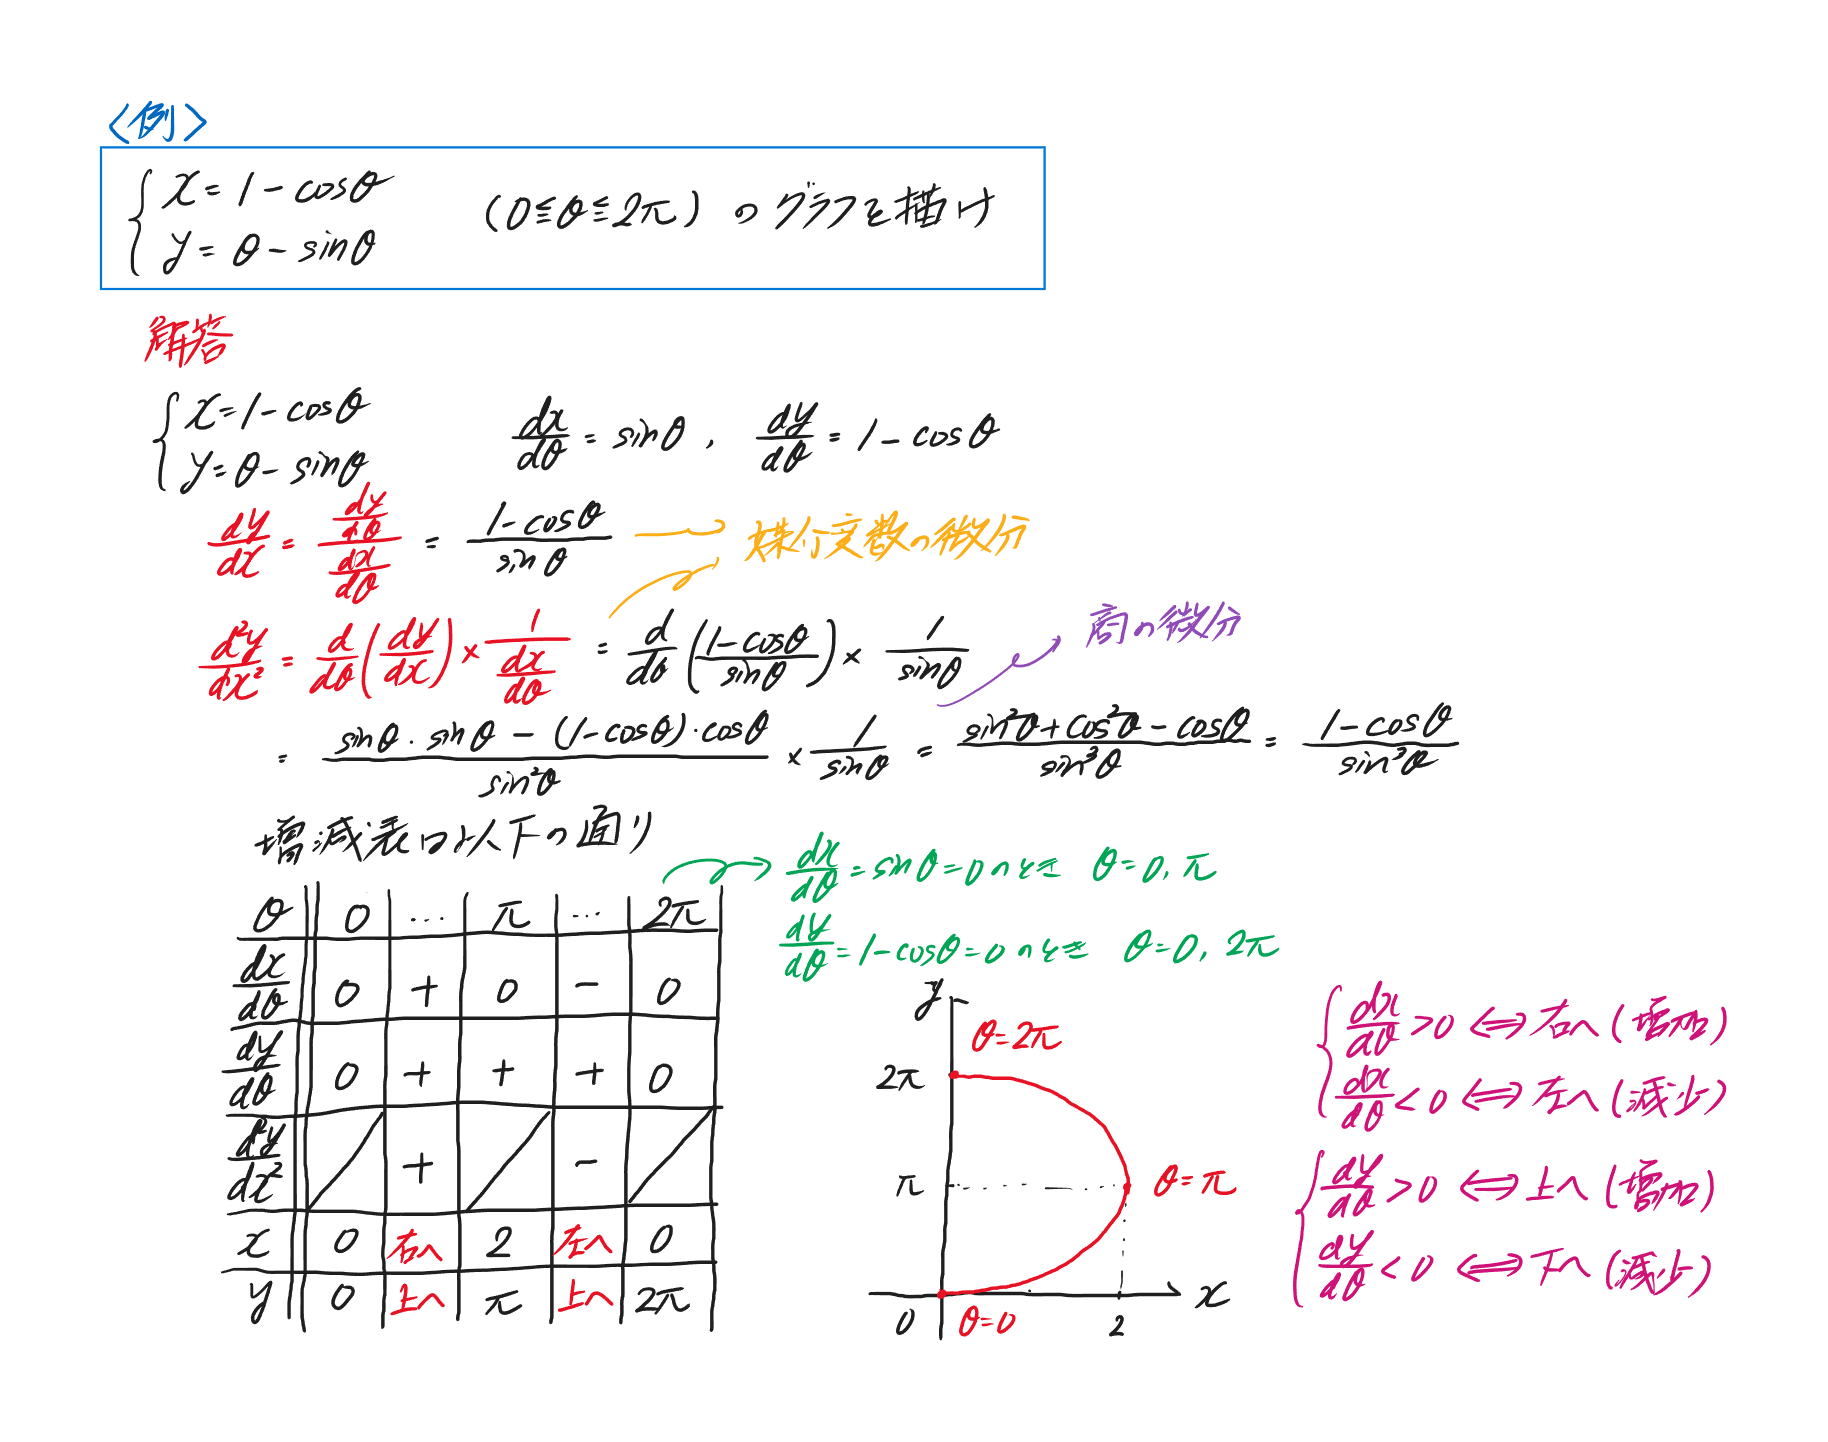 〈例〉
{ x = 1 - cosθ
y = θ - sinθ (0 ≦ θ ≦ 2π) のグラフを描け
解答
{ x = 1 - cosθ
y = θ - sinθ dx/dθ = sinθ , dy/dθ = 1 - cosθ
dy/dx = (dy/dθ)/(dx/dθ) = (1 - cosθ)/sinθ 媒介変数の微分
d²y/dx² = d/dθ (dy/dx) × 1/(dx/dθ) = d/dθ ((1 - cosθ)/sinθ) × 1/sinθ 商の微分
= (sinθ・sinθ - (1 - cosθ)・cosθ)/sin²θ × 1/sinθ = (sin²θ + cos²θ - cosθ)/sin³θ = (1 - cosθ)/sin³θ
増減表は以下の通り
dx/dθ = sinθ = 0 のとき θ = 0, π
dy/dθ = 1 - cosθ = 0 のとき θ = 0, 2π
θ 0 … π … 2π
dx/dθ 0 + 0 - 0
dy/dθ 0 + + + 0
d²y/dx² + -
x 0 右へ 2 左へ 0
y 0 上へ π 上へ 2π
y
θ = 2π
2π
π
θ = π
0
θ = 0
2
x
{ dx/dθ > 0 ⟺ 右へ (増加)
dx/dθ < 0 ⟺ 左へ (減少)
{ dy/dθ > 0 ⟺ 上へ (増加)
dy/dθ < 0 ⟺ 下へ (減少)